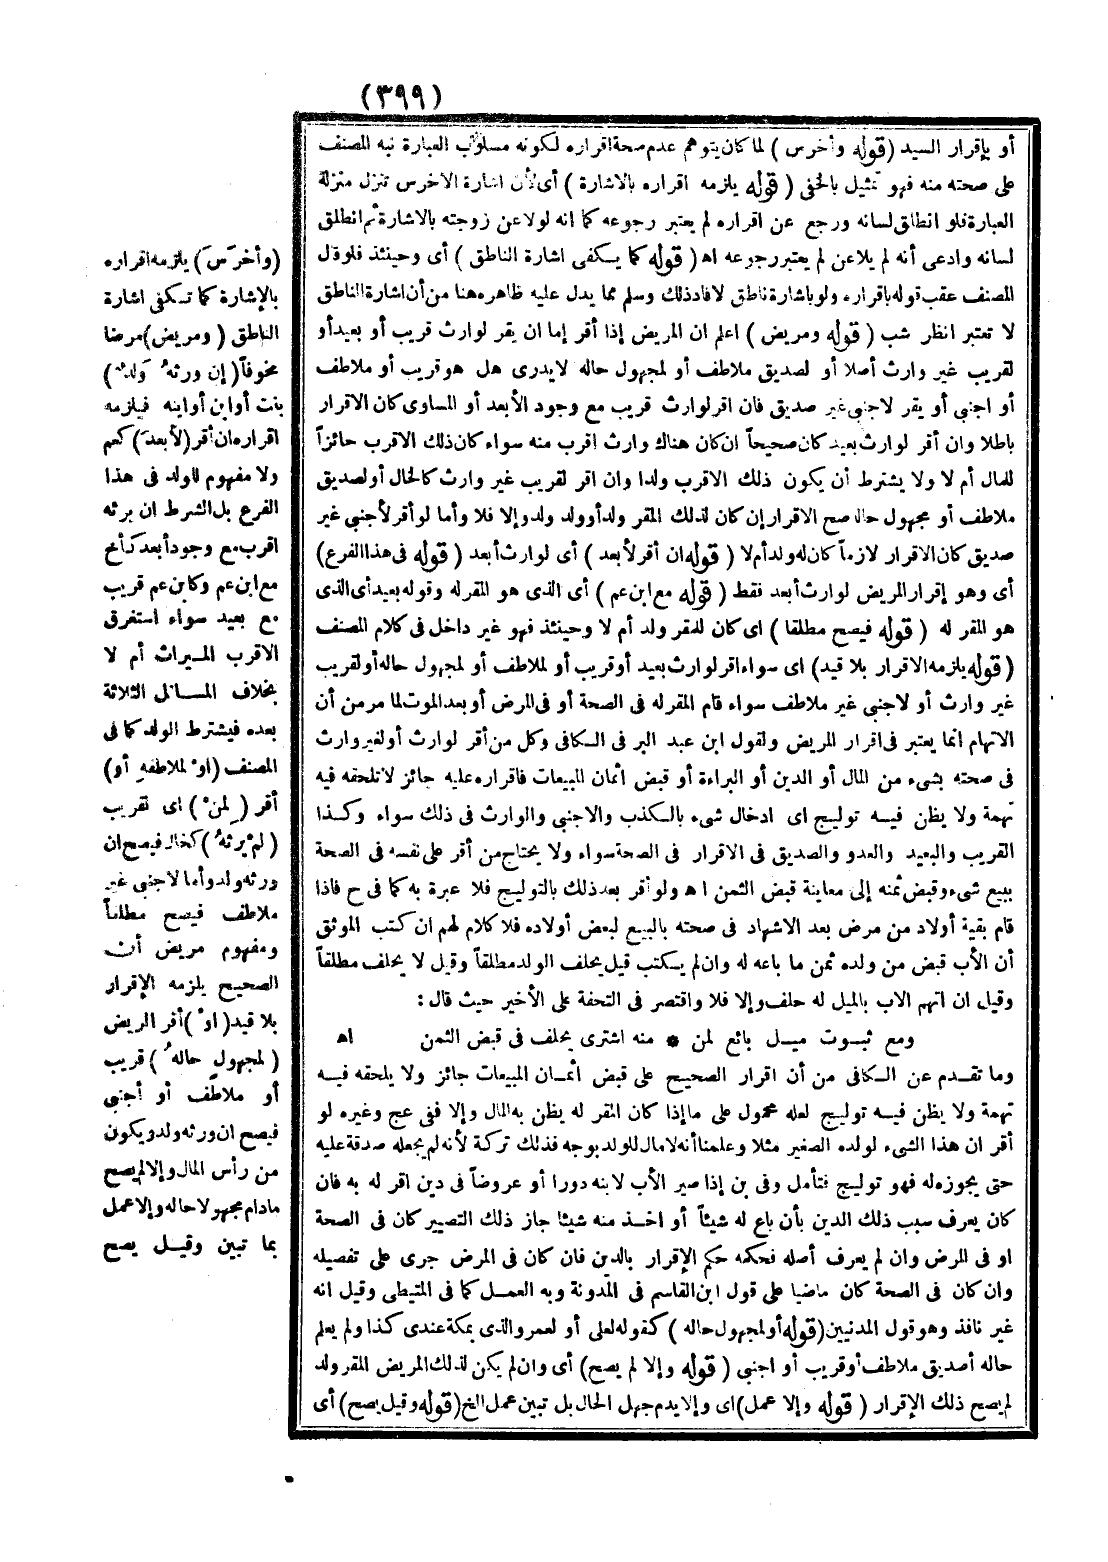 (٣٩٩)
أو بإقرار السيد (قوله وأخرس) لما كان يتوهم عدم صحة اقراره لكونه مسلوب العبارة نبه المصنف
على صحته منه فهو تمثيل بالخفى (قوله يلزمه اقراره بالاشارة) أى لأن اشارة الاخرس تنزل منزلة
العبارة فلو انطلق لسانه ورجع عن اقراره لم يعتبر رجوعه كما انه لو لاعن زوجته بالاشارة ثم انطلق
لسانه وادعى أنه لم يلاعن لم يعتبر رجوعه اه (قوله كما يكفى اشارة الناطق) أى وحينئذ فلو قال
المصنف عقب قوله باقراره ولو باشارة ناطق لافاد ذلك وسلم مما يدل عليه ظاهره هنا من أن اشارة الناطق
لا تعتبر انظر شب (قوله ومريض) اعلم ان المريض إذا أقر إما ان يقر لوارث قريب أو بعيد أو
لقريب غير وارث أصلا أو لصديق ملاطف أو لمجهول حاله لا يدرى هل هو قريب أو ملاطف
أو اجنبى أو يقر لاجنبى غير صديق فان اقر لوارث قريب مع وجود الأبعد أو المساوى كان الاقرار
باطلا وان أقر لوارث بعيد كان صحيحاً ان كان هناك وارث اقرب منه سواء كان ذلك الاقرب حائزاً
للمال أم لا ولا يشترط أن يكون ذلك الاقرب ولدا وان اقر لقريب غير وارث كالخال أو لصديق
ملاطف أو مجهول حاله صح الاقرار إن كان لذلك المقر ولد أو ولد ولد وإلا فلا وأما لو أقر لأجنبى غير
صديق كان الاقرار لازماً كان له ولد أم لا (قوله ان أقر لأبعد) أى لوارث أبعد (قوله فى هذا الفرع)
أى وهو إقرار المريض لوارث أبعد فقط (قوله مع ابن عم) أى الذى هو المقر له وقوله بعيد أى الذى
هو المقر له (قوله فيصح مطلقا) اى كان للمقر ولد أم لا وحينئذ فهو غير داخل فى كلام المصنف
(قوله يلزمه الاقرار بلا قيد) اى سواء اقر لوارث بعيد أو قريب أو لملاطف أو لمجهول حاله أو لقريب
غير وارث أو لاجنبى غير ملاطف سواء قام المقر له فى الصحة أو فى المرض أو بعد الموت لما مر من أن
الاتهام انما يعتبر فى اقرار المريض ولقول ابن عبد البر فى الكافى وكل من أقر لوارث أو لغير وارث
فى صحته بشىء من المال أو الدين أو البراءة أو قبض اثمان المبيعات فاقراره عليه جائز لا تلحقه فيه
تهمة ولا يظن فيه توليج اى ادخال شىء بالكذب والاجنبى والوارث فى ذلك سواء وكذا
القريب والبعيد والعدو والصديق فى الاقرار فى الصحة سواء ولا يحتاج من أقر على نفسه فى الصحة
ببيع شىء وقبض ثمنه إلى معاينة قبض الثمن اه ولو أقر بعد ذلك بالتوليج فلا عبرة به كما فى ح فاذا
قام بقية أولاد من مرض بعد الاشهاد فى صحته بالبيع لبعض أولاده فلا كلام لهم ان كتب الموثق
أن الأب قبض من ولده ثمن ما باعه له وان لم يكتب قيل يحلف الولد مطلقاً وقيل لا يحلف مطلقاً
وقيل ان اتهم الاب بالميل له حلف وإلا فلا واقتصر فى التحفة على الأخير حيث قال :
ومع ثبوت ميل بائع لمن * منه اشترى يحلف فى قبض الثمن اه
وما تقدم عن الكافى من أن اقرار الصحيح على قبض أثمان المبيعات جائز ولا يلحقه فيه
تهمة ولا يظن فيه توليج لعله محمول على ما إذا كان المقر له يظن به المال وإلا ففى عج وغيره لو
أقر ان هذا الشىء لولده الصغير مثلا وعلمنا أنه لا مال للولد بوجه فذلك تركة لأنه لم يجعله صدقة عليه
حتى يجوزه له فهو توليج فتأمل وفى بن إذا صير الأب لابنه دورا أو عروضاً فى دين اقر له به فان
كان يعرف سبب ذلك الدين بأن باع له شيئاً أو اخذ منه شيئا جاز ذلك التصيير كان فى الصحة
او فى المرض وان لم يعرف أصله فحكمه حكم الإقرار بالدين فان كان فى المرض جرى على تفصيله
وان كان فى الصحة كان ماضيا على قول ابن القاسم فى المدونة وبه العمل كما فى المتيطى وقيل انه
غير نافذ وهو قول المدنيين (قوله أو لمجهول حاله) كقوله لعلى أو لعمرو الذى بمكة عندى كذا ولم يعلم
حاله أصديق ملاطف أو قريب أو اجنبى (قوله وإلا لم يصح) أى وان لم يكن لذلك المريض المقر ولد
لم يصح ذلك الإقرار (قوله وإلا عمل) اى وإلا يدم جهل الحال بل تبين عمل الخ (قوله وقيل يصح) أى
(وأخرَسَ) يلزمه اقراره
بالإشارة كما تكفى اشارة
الناطق (ومريض) مرضا
مخوفاً (إن ورثهُ ولدٌ)
بنت أو ابن أو ابنه فيلزمه
اقراره ان أقر (لأبعدَ) كعم
ولا مفهوم للولد فى هذا
الفرع بل الشرط ان يرثه
اقرب مع وجود أبعد كأخ
مع ابن عم وكابن عم قريب
مع بعيد سواء استغرق
الاقرب الميراث أم لا
بخلاف المسائل الثلاثة
بعده فيشترط الولد كما فى
المصنف (اوْ لملاطفهِ أو)
أقر (لِمنْ) اى لقريب
(لم يرثهُ) كخال فيصح ان
ورثه ولد وأما لاجنبى غير
ملاطف فيصح مطلقاً
ومفهوم مريض أن
الصحيح يلزمه الإقرار
بلا قيد (اوْ) أقر المريض
(لمجهولٍ حالهُ) قريب
أو ملاطف أو أجنبى
فيصح ان ورثه ولد ويكون
من رأس المال وإلا لم يصح
مادام مجهولا حاله وإلا عمل
بما تبين وقيل يصح